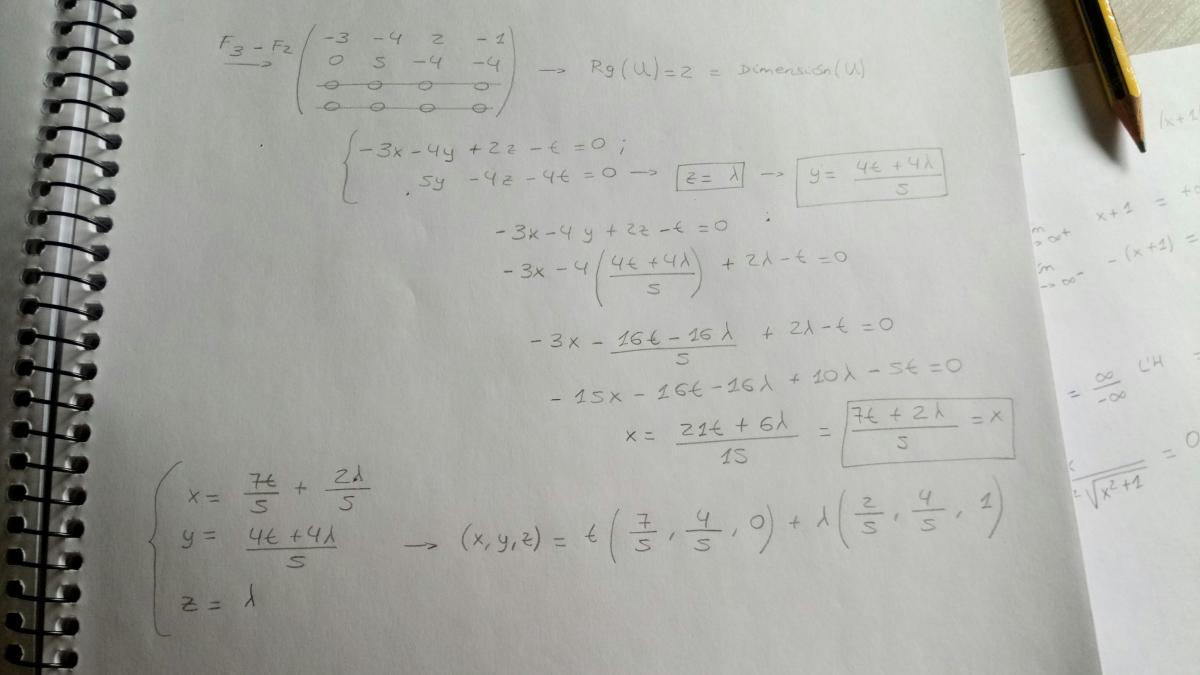 F3 - F2 → ( -3 -4 2 -1
0 5 -4 -4 → Rg(U) = 2 = Dimensión(U)
0 0 0 0
0 0 0 0 )
{ -3x - 4y + 2z - t = 0 ;
5y - 4z - 4t = 0 → z = λ → y = (4t + 4λ)/5
-3x - 4y + 2z - t = 0
-3x - 4 ( (4t + 4λ)/5 ) + 2λ - t = 0
-3x - (16t - 16λ)/5 + 2λ - t = 0
- 15x - 16t - 16λ + 10λ - 5t = 0
x = (21t + 6λ)/15 = (7t + 2λ)/5 = x
{ x = 7t/5 + 2λ/5
y = (4t + 4λ)/5 → (x, y, z) = t ( 7/5 , 4/5 , 0 ) + λ ( 2/5 , 4/5 , 1 )
z = λ
(x+1)
x+1 = +∞
→∞+
- (x+1) =
→∞-
= ∞/-∞ L'H =
√x²+1 = 0